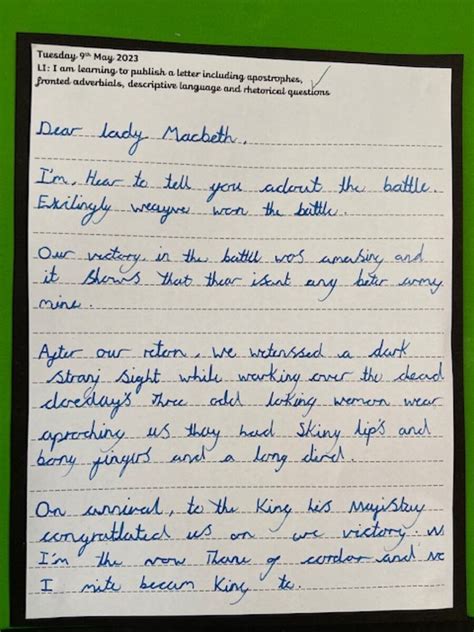 Tuesday 9th May 2023
LI: I am learning to publish a letter including apostrophes,
fronted adverbials, descriptive language and rhetorical questions
Dear lady Macbeth,
I'm, Hear to tell you adout the battle.
Exilingly weayve won the battle.
Our victory, in the battle was amasing and
it shows that thear isent any beter army
mine.
After our retorn, we wetenssed a dark
stranj sight while warking over the dead
doedays Three odd loking women wear
aproching us they had skiny lip's and
bony fingurs and a long dierd.
On arrival, to the King his Majistay
congratlated us on we victory.
I'm the now Thane of cordor and
I mite becum King to.